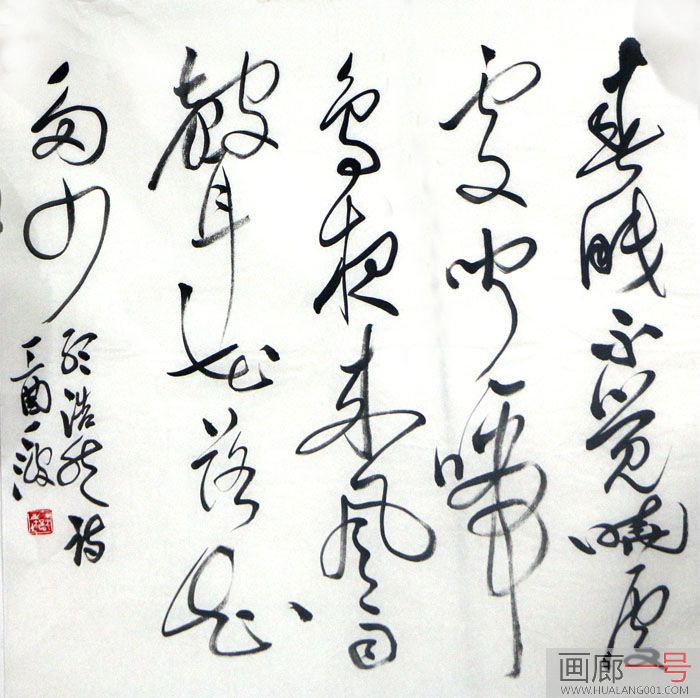 春眠不觉晓处
处闻啼
鸟夜来风雨
聲花落知
多少
孟浩然诗
丁酉
画廊一号
WWW.HUALANG001.COM